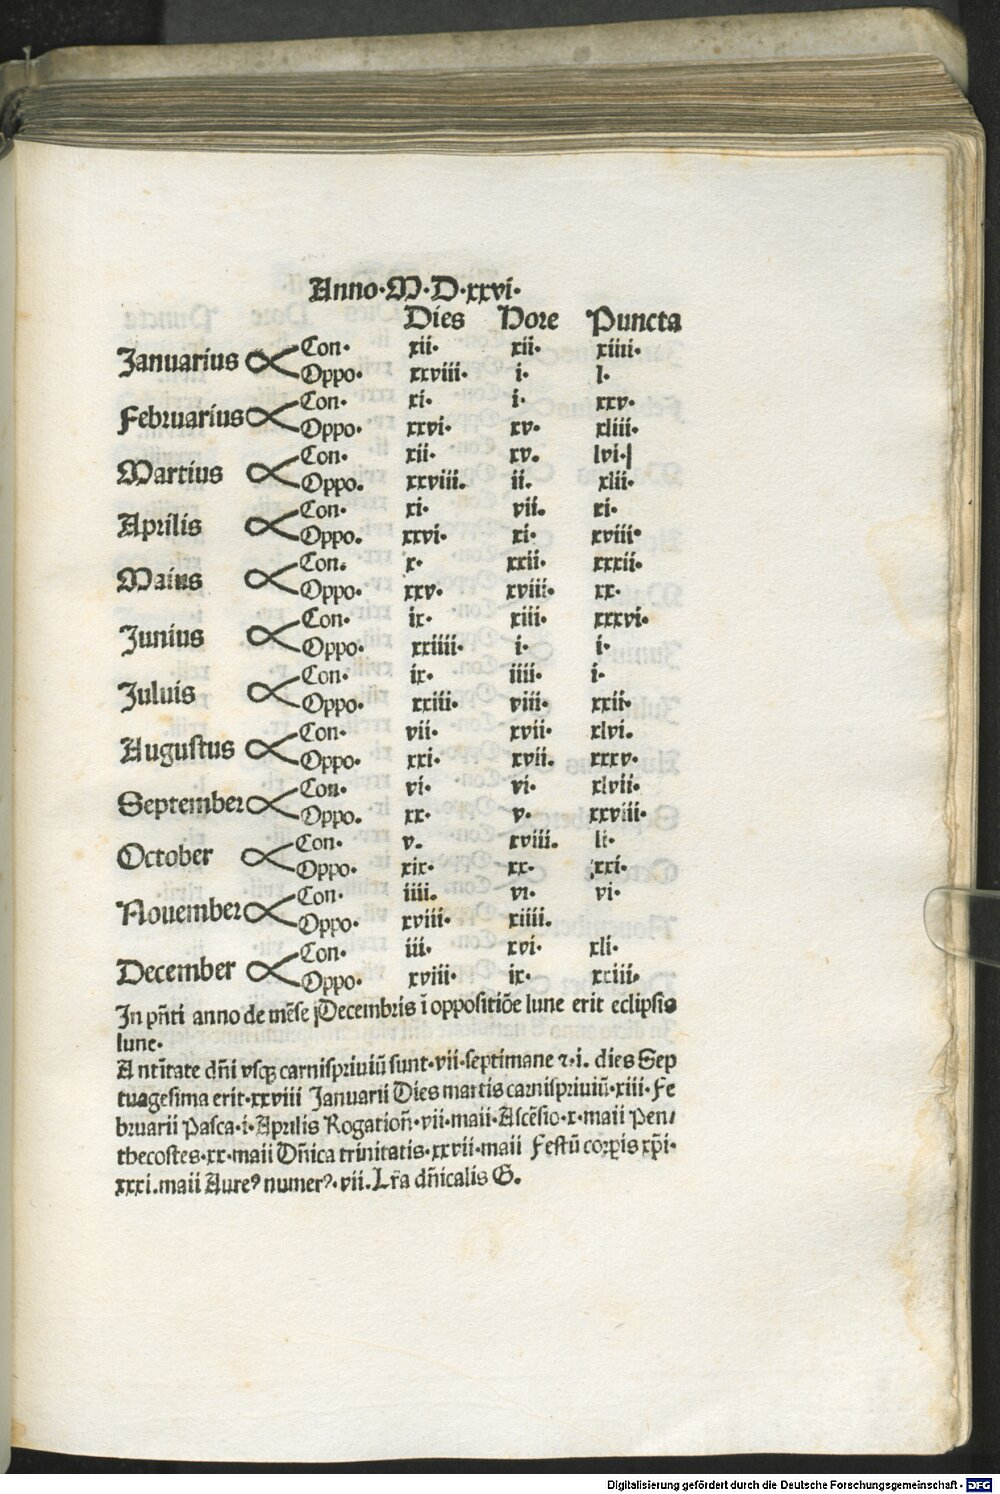 Anno·M·D·xxvi·
Dies Hore Puncta
Januarius Con· xii· xii· xiiii·
Oppo· xxviii· i· l·
Februarius Con· xi· i· xxv·
Oppo· xxvi· xv· xliii·
Martius Con· xii· xv· lvi·
Oppo· xxviii· ii· xlii·
Aprilis Con· xi· vii· xi·
Oppo· xxvi· xi· xviii·
Maius Con· x· xxii· xxxii·
Oppo· xxv· xviii· xx·
Junius Con· ix· xiii· xxxvi·
Oppo· xxiiii· i· i·
Juluis Con· ix· iiii· i·
Oppo· xxiii· viii· xxii·
Augustus Con· vii· xvii· xlvi·
Oppo· xxi· xvii· xxxv·
September Con· vi· vi· xlvii·
Oppo· xx· v· xxviii·
October Con· v· xviii· li·
Oppo· xix· xx· xxi·
Nouember Con· iiii· vi· vi·
Oppo· xviii· xiiii·
December Con· iii· xvi· xli·
Oppo· xviii· ix· xxiii·
In pñti anno de mẽse Decembris ĩ oppositiõe lune erit eclipsis
lune·
A ntĩtate dñi vsqꝫ carnispriuiũ sunt·vii·septimane ⁊·i· dies Sep
tuagesima erit·xxviii Januarii Dies martis carnispriuiũ·xiii·Fe
bruarii Pasca·i·Aprilis Rogatioñ·vii·maii·Ascẽsio·x·maii Pen/
thecostes·xx·maii Dñica trinitatis·xxvii·maii Festũ corꝑis xp̃i·
xxxi·maii Aureꝰ numerꝰ·vii·Lr̃a dñicalis G·
Digitalisierung gefördert durch die Deutsche Forschungsgemeinschaft · DFG